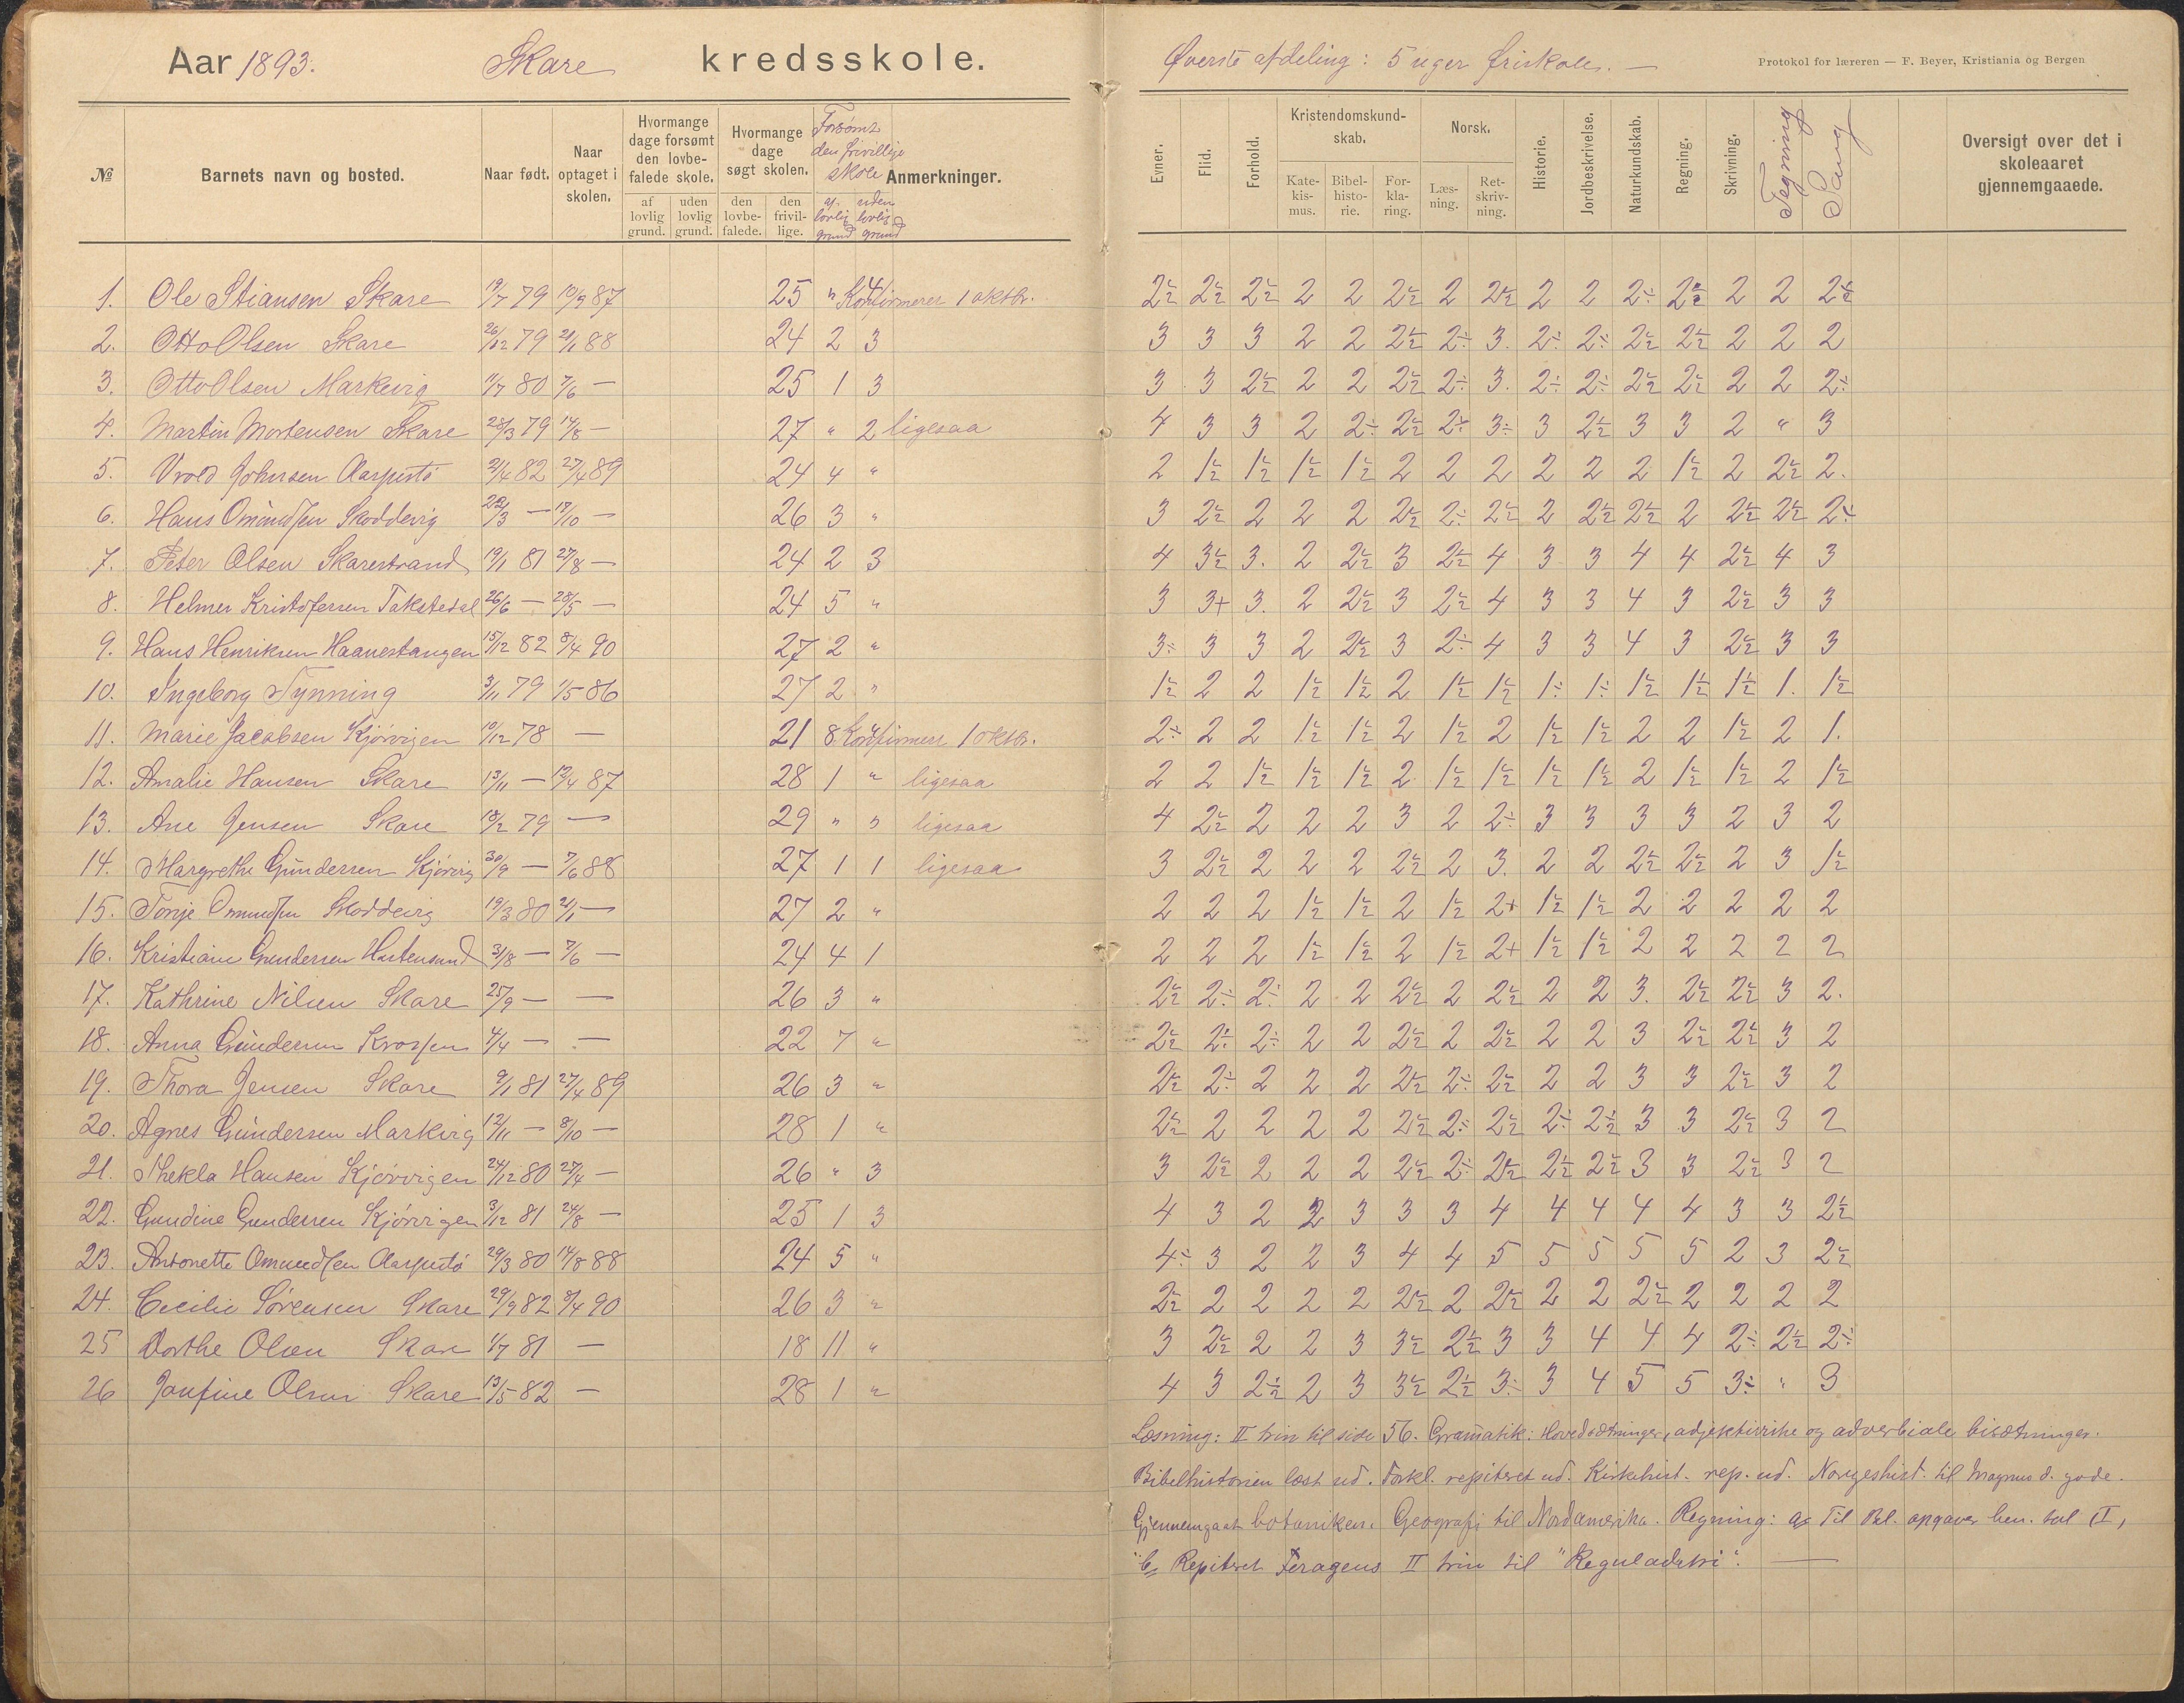 Aar 1893. Skare kredsskole.
Øverste afdeling: 5 uger friskole. —
Protokol for læreren — F. Beyer, Kristiania og Bergen
№ Barnets navn og bosted. Naar født. Naar optaget i skolen. Hvormange dage forsømt den lovbefalede skole. af lovlig grund. uden lovlig grund. Hvormange dage søgt skolen. den lovbefalede. den frivillige. Forsømt den frivillige skole af lovlig grund uden lovlig grund Anmerkninger.
Evner. Flid. Forhold. Kristendomskundskab. Katekismus. Bibelhistorie. Forklaring. Norsk. Læsning. Retskrivning. Historie. Jordbeskrivelse. Naturkundskab. Regning. Skrivning. Tegning Sang Oversigt over det i skoleaaret gjennemgaaede.
1. Ole Stiansen Skare 19/7 79 10/9 87 25 " 4 Konfirmeres 1 oktbr. 2½ 2½ 2½ 2 2 2½ 2 2½ 2 2 2÷ 2½ 2 2 2½
2. Otto Olsen Skare 26/12 79 21/1 88 24 2 3 3 3 3 2 2 2½ 2÷ 3. 2÷ 2÷ 2½ 2½ 2 2 2
3. Otto Olsen Markevig 11/7 80 7/6 — 25 1 3 3 3 2½ 2 2 2½ 2÷ 3. 2÷ 2÷ 2½ 2½ 2 2 2÷
4. Martin Mortensen Skare 28/3 79 14/8 — 27 " 2 ligesaa 4 3 3 2 2÷ 2½ 2÷ 3÷ 3 2½ 3 3 2 " 3
5. Vrold Johnsen Aaspustö 21/4 82 27/4 89 24 4 " 2 1½ 1½ 1½ 1½ 2 2 2 2 2 2 1½ 2 2½ 2.
6. Hans Omundsen Skoddevig 22/3 — 17/10 — 26 3 " 3 2½ 2 2 2 2½ 2÷ 2½ 2 2½ 2½ 2 2½ 2½ 2÷
7. Peter Olsen Skarestrand 19/1 81 27/8 — 24 2 3 4 3½ 3. 2 2½ 3 2½ 4 3 3 4 4 2½ 4 3
8. Helmer Kristofersen Takstedal 26/6 — 28/5 — 24 5 " 3 3+ 3. 2 2½ 3 2½ 4 3 3 4 3 2½ 3 3
9. Hans Henriksen Haanestangen 15/12 82 8/4 90 27 2 " 3÷ 3 3 2 2½ 3 2÷ 4 3 3 4 3 2½ 3 3
10. Ingeborg Tynning 3/11 79 1/5 86 27 2 " 1½ 2 2 1½ 1½ 2 1½ 1½ 1÷ 1÷ 1½ 1½ 1½ 1. 1½
11. Marie Jacobsen Kjørvigen 10/12 78 — 21 8 4 Konfirmeres 1 oktbr. 2÷ 2 2 1½ 1½ 2 1½ 2 1½ 1½ 2 2 1½ 2 1.
12. Amalie Hansen Skare 13/11 — 13/4 87 28 1 " ligesaa 2 2 1½ 1½ 1½ 2 1½ 1½ 1½ 1½ 2 1½ 1½ 2 1½
13. Ane Jensen Skare 18/2 79 — 29 " " ligesaa 4 2½ 2 2 2 3 2 2÷ 3 3 3 3 2 3 2
14. Margrethe Gundersen Kjørvig 30/9 — 7/6 88 27 1 1 ligesaa 3 2½ 2 2 2 2½ 2 3. 2 2 2½ 2½ 2 3 1½
15. Tonje Omundsen Skoddevig 19/3 80 21/1 — 27 2 " 2 2 2 1½ 1½ 2 1½ 2+ 1½ 1½ 2 2 2 2 2
16. Kristiane Gundersen Hartensund 31/8 — 7/6 — 24 4 1 2 2 2 1½ 1½ 2 1½ 2+ 1½ 1½ 2 2 2 2 2
17. Kathrine Nilsen Skare 25/9 — — 26 3 " 2½ 2÷ 2÷ 2 2 2½ 2 2½ 2 2 3. 2½ 2½ 3 2.
18. Anna Gundersen Krossen 4/4 — — 22 7 " 2½ 2÷ 2÷ 2 2 2½ 2 2½ 2 2 3 2½ 2½ 3 2
19. Thora Jensen Skare 9/1 81 27/4 89 26 3 " 2½ 2÷ 2 2 2 2½ 2÷ 2½ 2 2 3 3 2½ 3 2
20. Agnes Gundersen Markvig 12/11 — 8/10 — 28 1 " 2½ 2 2 2 2 2½ 2÷ 2½ 2÷ 2½ 3 3 2½ 3 2
21. Thekla Hansen Kjørvigen 24/12 80 27/4 — 26 " 3 3 2½ 2 2 2 2½ 2÷ 2½ 2½ 2½ 3 3 2½ 3 2
22. Gundine Gundersen Kjørvigen 3/12 81 24/8 — 25 1 3 4 3 2 2 3 3 3 4 4 4 4 4 3 3 2½
23. Antonette Omundsen Aaspustö 29/3 80 14/8 88 24 5 " 4÷ 3 2 2 3 4 4 5 5 5 5 5 2 3 2½
24. Cecilie Sørensen Skare 29/9 82 8/4 90 26 3 " 2½ 2 2 2 2 2½ 2 2½ 2 2 2½ 2 2 2 2
25 Dorthe Olsen Skare 1/7 81 — 18 11 " 3 2½ 2 2 3 3½ 2½ 3 3 4 4 4 2÷ 2½ 2÷
26 Josefine Olsen Skare 13/5 82 — 28 1 " 4 3 2½ 2 3 3½ 2½ 3÷ 3 4 5 5 3÷ " 3
Læsning: II trin til side 56. Gramatik: Hovedsætninger, adjektiviske og adverbiale bisætninger.
Bibelhistorien læst ud. Forkl. repiteret ud. Kirkehist. rep. ud. Norgeshist. til Magnus d. gode.
Gjennemgaat botaniken. Geografi til Nordamerika. Regning: a) Til Bl. opgaver ben. tal II,
b) Repiteret Feragens II trin til "Reguladetri". —